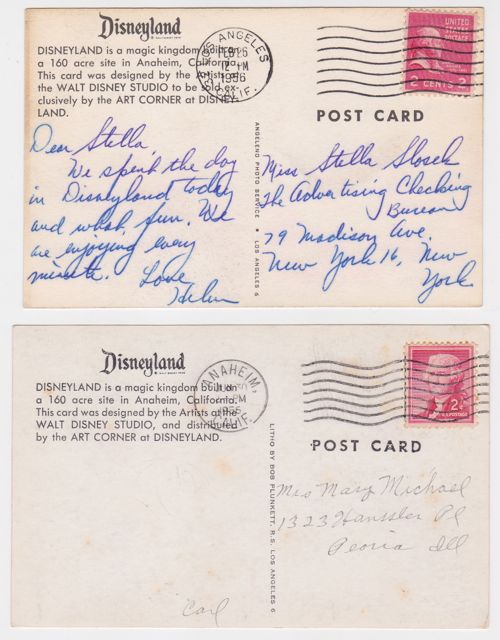 Disneyland
DISNEYLAND is a magic kingdom built on
a 160 acre site in Anaheim, California.
This card was designed by the Artists of
the WALT DISNEY STUDIO to be sold ex-
clusively by the ART CORNER at DISNEY-
LAND.
LOS ANGELES
12 PM
1956
CALIF.
UNITED
STATES
POSTAGE
2 CENTS 2
POST CARD
Dear Stella,
We spent the day
in Disneyland today
and what fun. We
are enjoying every
minute. Love
Helen
ANGELENO PHOTO SERVICE • LOS ANGELES 6
Miss Stella
The Advertising Checking
Bureau
79 Madison Ave.
New York 16, New
York
Disneyland
DISNEYLAND is a magic kingdom built on
a 160 acre site in Anaheim, California.
This card was designed by the Artists of the
WALT DISNEY STUDIO, and distributed
by the ART CORNER at DISNEYLAND.
ANAHEIM,
PM
1956
CALIF.
2¢
U.S. POSTAGE
POST CARD
LITHO BY BOB PLUNKETT, R.S. LOS ANGELES 6
Mrs Mary Michael
1323 Hanssler Pl
Peoria Ill
Carl